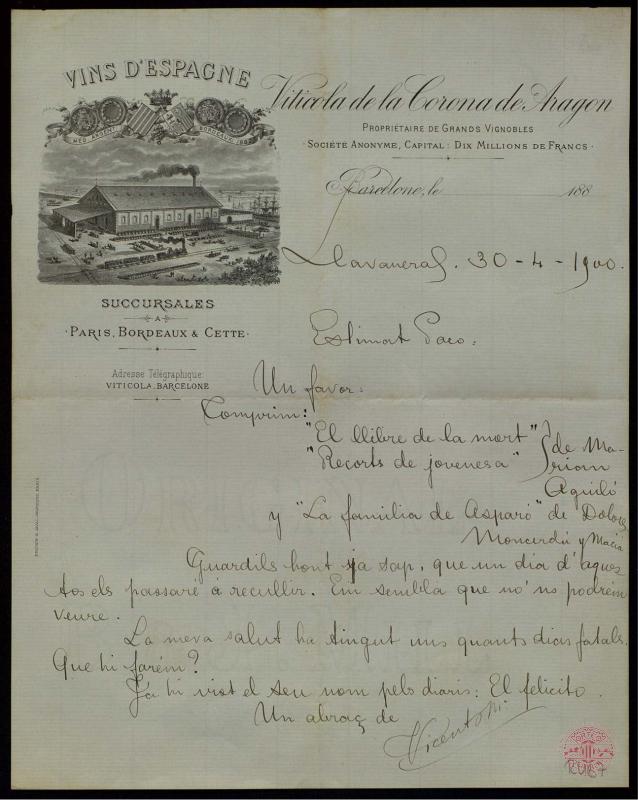 VINS D'ESPAGNE
MED. ARGENT BORDEAUX 1882
Viticola de la Corona de Aragon
PROPRIÉTAIRE DE GRANDS VIGNOBLES
· SOCIÉTÉ ANONYME, CAPITAL: DIX MILLIONS DE FRANCS ·
Barcelone, le 188
SUCCURSALES
A
· PARIS, BORDEAUX & CETTE ·
Adresse Télégraphique:
VITICOLA, BARCELONE
Llavaneras. 30-4-1900.
Estimat Paco:
Un favor:
Comprim:
"El llibre de la mort"
"Recorts de jovenesa"
de Ma-
riam
Aguiló
y "La familia de Asparó" de Dolors
Moncerdá y Maciá
Guardils hont ja sap, que un dia d'aques
tos els passaré á recullir. Em sembla que no'ns podrém
veure.
La meva salut ha tingut uns quants dias fatals.
Que hi farém?
Ja hi vist el seu nom pels diaris: El felicito.
Un abraç de
Vicents
RV187